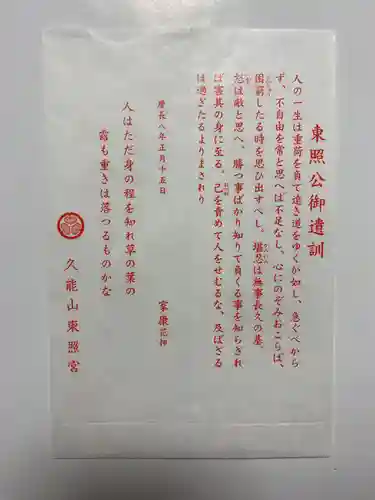 東照公御遺訓
人の一生は重荷を負て遠き道をゆくが如し、急ぐべから
ず、不自由を常と思へば不足なし。心にのぞみおこらば、
困窮したる時を思ひ出すべし。堪忍は無事長久の基、
怒は敵と思へ。勝つ事ばかり知りて負くる事を知らざれ
ば害其の身に至る。己を責めて人をせむるな、及ばざる
は過ぎたるよりまされり
慶長八年正月十五日
家康花押
人はただ身の程を知れ草の葉の
露も重きは落つるものかな
久能山東照宮